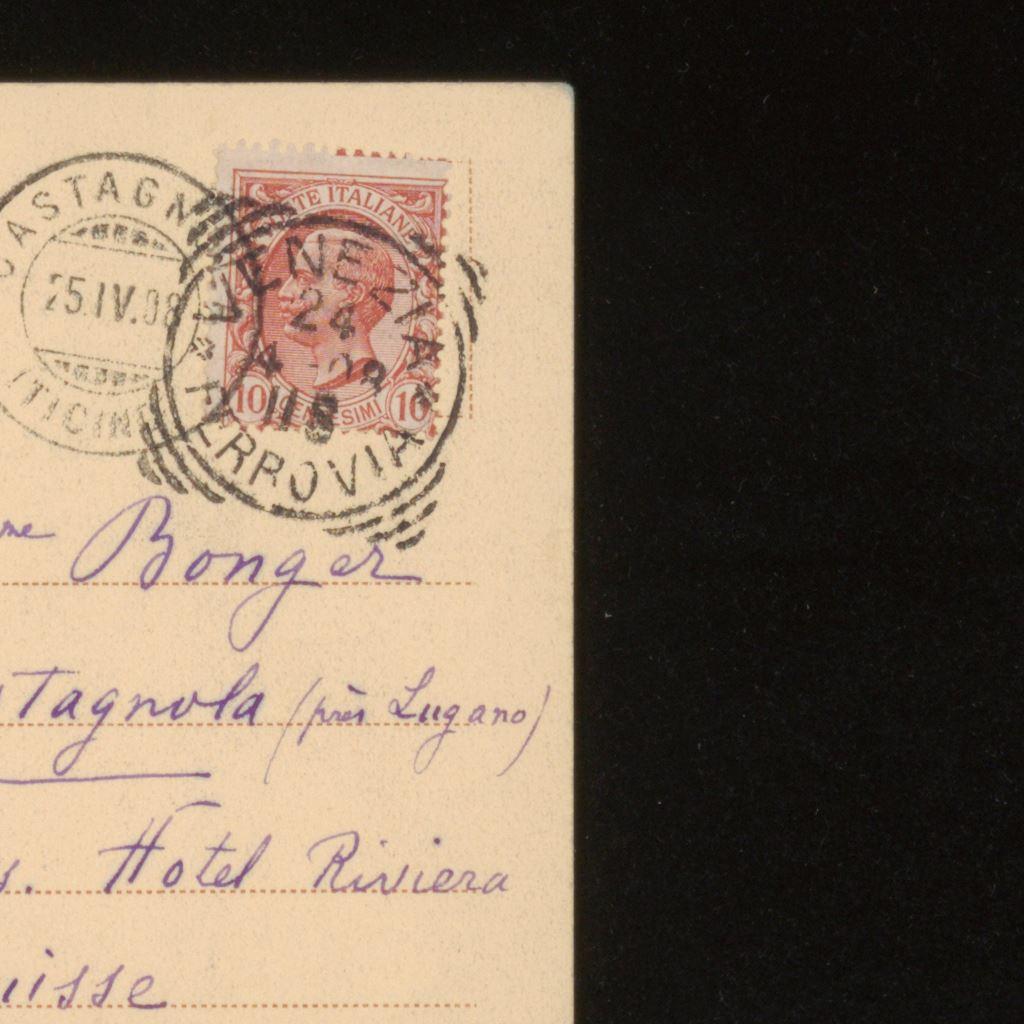 CASTAGN
25.IV.08
(TICINO
POSTE ITALIANE
10 CENTESIMI 10
VENEZIA
24
4-08
11S
* FERROVIA *
me Bonger
stagnola (près Lugano)
s. Hotel Riviera
uisse